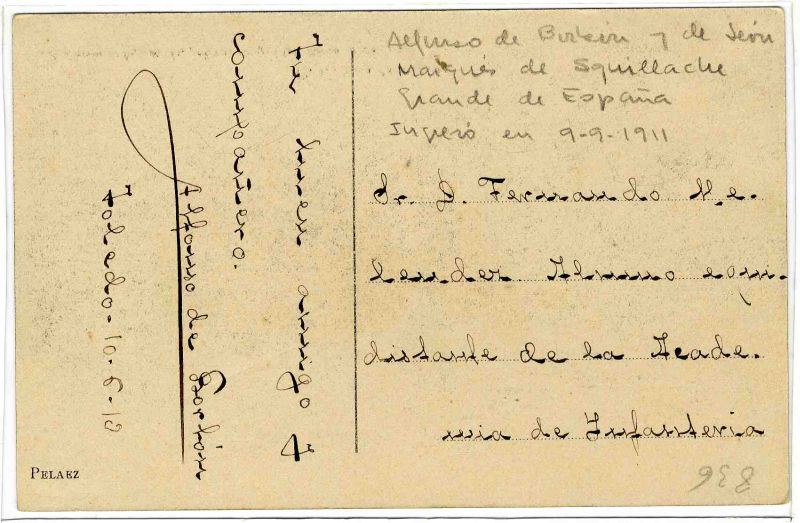 Tu buen amigo y
compañero.
Alfonso de Borbón
Toledo-10-6-12
Alfonso de Borbón y de León
Marqués de Squillache
Grande de España
Ingresó en 9-9-1911
Sr. D. Fernando Me.
lendez Alumno equi-
distante de la Acade.
mia de Infanteria
PELAEZ
936